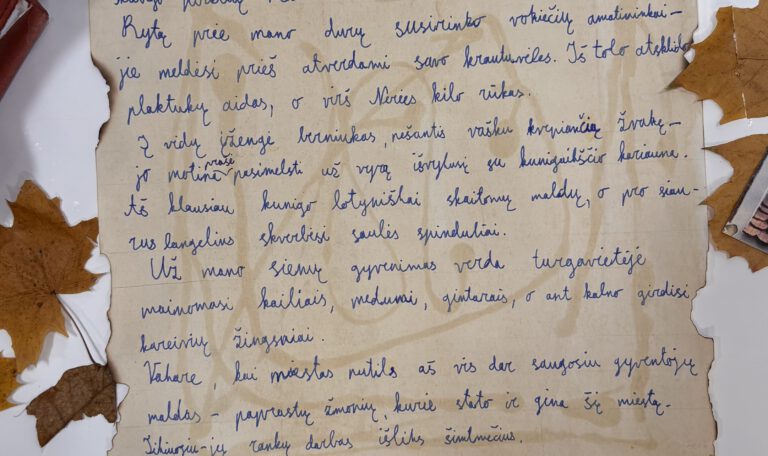 Rytą prie mano durų susirinko vokiečių amatininkai –
jie meldėsi prieš atverdami savo krautuvėles. Iš tolo atsklido
plaktukų aidas, o virš Neries kilo rūkas.
Į vidų įžengė berniukas, nešantis vašku kvepiančią žvakę –
jo motina prašė pasimelsti už vyrą išvykusį su kunigaikščio kariauna.
Aš klausiau kunigo lotyniškai skaitomų maldų, o pro siau-
rus langelius skverbėsi saulės spinduliai.
Už mano sienų gyvenimas verda turgavietėje
mainomasi kailiais, medumi, gintarais, o ant kalno girdisi
kareivių žingsniai.
Vakare, kai miestas nutils aš vis dar saugosiu gyventojų
maldas – paprastų žmonių, kurie stato ir gina šį miestą.
Tikiuosi – jų rankų darbas išliks šimtmečius.